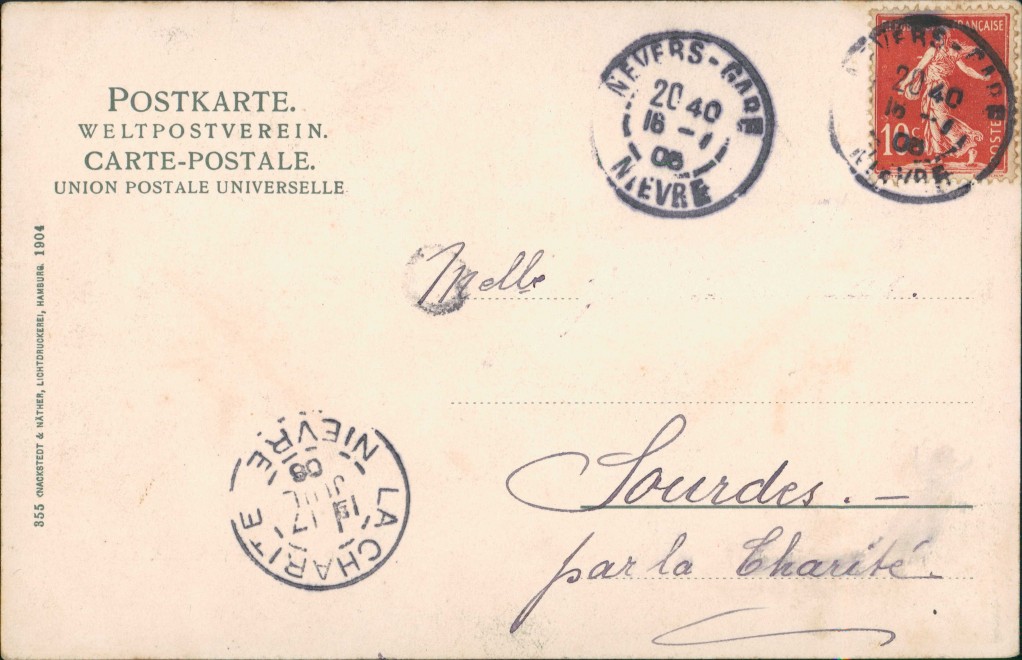 POSTKARTE.
WELTPOSTVEREIN.
CARTE-POSTALE.
UNION POSTALE UNIVERSELLE
355 KNACKSTEDT & NÄTHER, LICHTDRUCKEREI, HAMBURG. 1904
NEVERS-GARE
20 40
16 -
08
NIEVRE
FRANÇAISE
10c
POSTES
NEVERS-GARE
20 40
16 -
08
NIEVRE
Melle
Sourdes. -
par la Charité.
LA CHARITE
17
JUIL
08
NIEVRE